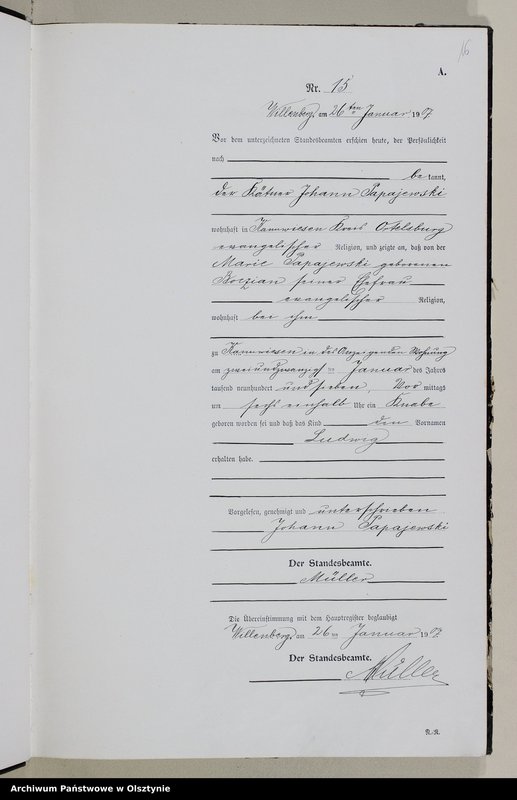 116
A.
Nr. 15
Willenberg, am 26ten Januar 1907.
Vor dem unterzeichneten Standesbeamten erschien heute, der Persönlichkeit
nach
bekannt,
der Kätner Johann Papajewski
wohnhaft in Kannwiesen Kreis Ortelsburg
evangelischer Religion, und zeigte an, daß von der
Marie Papajewski geborenen
Koczian seiner Ehefrau
evangelischer Religion,
wohnhaft bei ihm
zu Kannwiesen in des Anzeigenden Wohnung
am zweiundzwanzigsten Januar des Jahres
tausend neunhundert und sieben, Vor mittags
um sechs einhalb Uhr ein Knabe
geboren worden sei und daß das Kind den Vornamen
Ludwig
erhalten habe.
Vorgelesen, genehmigt und unterschrieben
Johann Papajewski
Der Standesbeamte.
Müller
Die Übereinstimmung mit dem Hauptregister beglaubigt
Willenberg, am 26ten Januar 1907.
Der Standesbeamte.
Müller
R.-R.
Archiwum Państwowe w Olsztynie